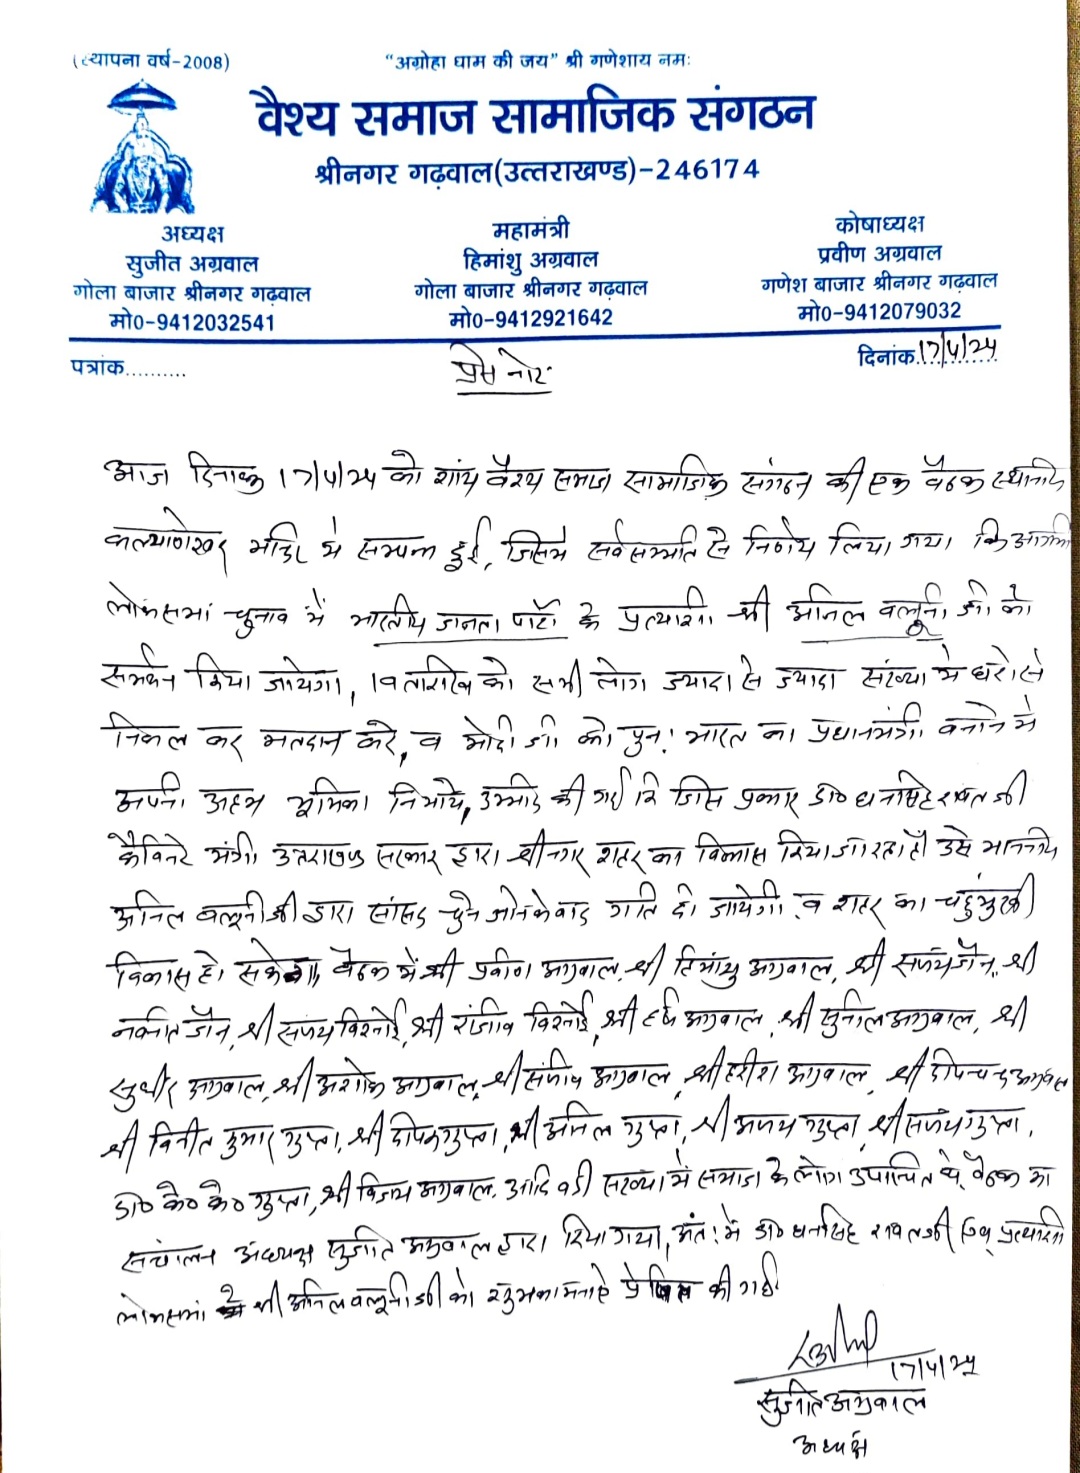 (स्थापना वर्ष-2008)
"अग्रोहा धाम की जय" श्री गणेशाय नमः
वैश्य समाज सामाजिक संगठन
श्रीनगर गढ़वाल(उत्तराखण्ड)-246174
अध्यक्ष
सुजीत अग्रवाल
गोला बाजार श्रीनगर गढ़वाल
मो0-9412032541
महामंत्री
हिमांशु अग्रवाल
गोला बाजार श्रीनगर गढ़वाल
मो0-9412921642
कोषाध्यक्ष
प्रवीण अग्रवाल
गणेश बाजार श्रीनगर गढ़वाल
मो0-9412079032
पत्रांक..........
प्रेस नोट
दिनांक 17/4/24
आज दिनांक 17/4/24 को शांय वैश्य समाज सामाजिक संगठन की एक बैठक स्थानीय
कल्याणेश्वर मंदिर में सम्पन्न हुई, जिसमें सर्वसम्मति से निर्णय लिया गया कि आगामी
लोकसभा चुनाव में भारतीय जनता पार्टी के प्रत्याशी श्री अनिल बलूनी जी को
समर्थन किया जायेगा, 19 तारीख को सभी लोग ज्यादा से ज्यादा संख्या में घरो से
निकल कर मतदान करे, व मोदी जी को पुनः भारत का प्रधानमंत्री बनाने में
अपनी अहम भूमिका निभाये, उम्मीद की गई कि जिस प्रकार डा० धनसिंह रावत जी
कैबिनेट मंत्री उत्तराखण्ड सरकार द्वारा श्रीनगर शहर का विकास किया जा रहा है उसे माननीय
अनिल बलूनी जी द्वारा सांसद चुने जाने के बाद गति दी जायेगी व शहर का चहुंमुखी
विकास हो सकेगा, बैठक में श्री प्रवीण अग्रवाल, श्री हिमांशु अग्रवाल, श्री संजय जैन, श्री
नवनीत जैन, श्री संजय बिश्नोई, श्री राजीव बिश्नोई, श्री हर्ष अग्रवाल, श्री सुनील अग्रवाल, श्री
सुधीर अग्रवाल, श्री अशोक अग्रवाल, श्री संजीव अग्रवाल, श्री हरीश अग्रवाल, श्री दीपचन्द अग्रवाल
श्री विनीत कुमार गुप्ता, श्री दीपक गुप्ता, श्री अनिल गुप्ता, श्री अजय गुप्ता, श्री संजय गुप्ता,
डा० के० के० गुप्ता, श्री विजय अग्रवाल, आदि बड़ी संख्या में समाज के लोग उपस्थित थे, बैठक का
संचालन अध्यक्ष सुजीत अग्रवाल द्वारा किया गया, अंतः में डा० धनसिंह रावत जी एवं प्रत्याशी
लोकसभा श्री अनिल बलूनी जी को शुभकामनाऐ प्रेषित की गई
17/4/24
सुजीत अग्रवाल
अध्यक्ष